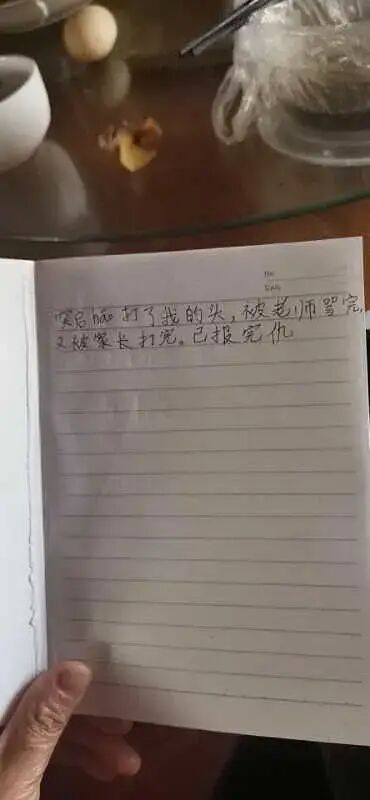 No.
Date
hao 打了我的头，被老师骂完，
又被家长打完。已报完仇